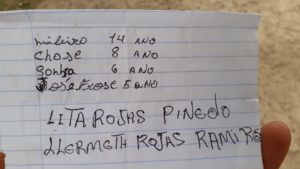 milviro 14 ANO
chose 8 ANO
Sonha 6 ANO
José Jose 5 ANO
LITA ROJAS PINEDO
LLERMETH ROJAS RAMIRE